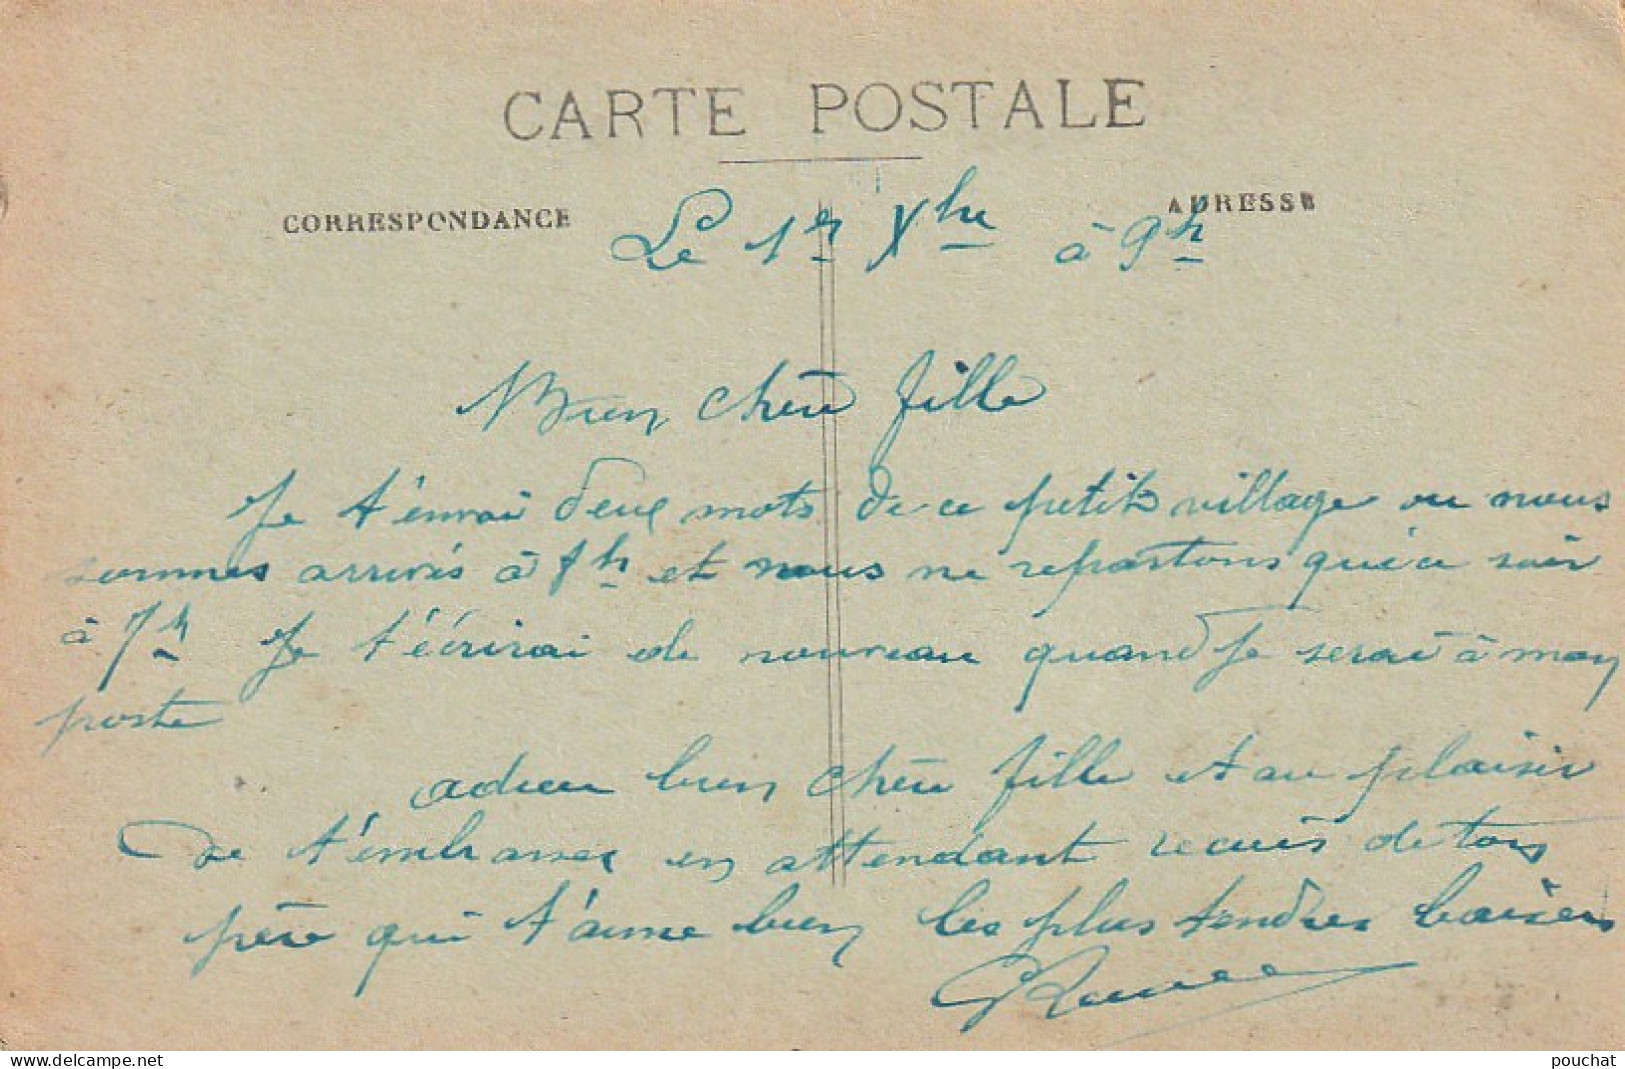 CARTE POSTALE
CORRESPONDANCE
ADRESSE
Le 1er Xbre à 9h
Bien chère fille
Je t'envoi deux mots de ce petit village ou nous
sommes arrivés à 1h et nous ne repartons qu'a ce soir
à 7h Je t'écrirai de nouveau quand Je serai à mon
poste
adieu bien chère fille et au plaisir
de t'embrasser en attendant recois de ton
père qui t'aime bien les plus tendres baisers
pouchat